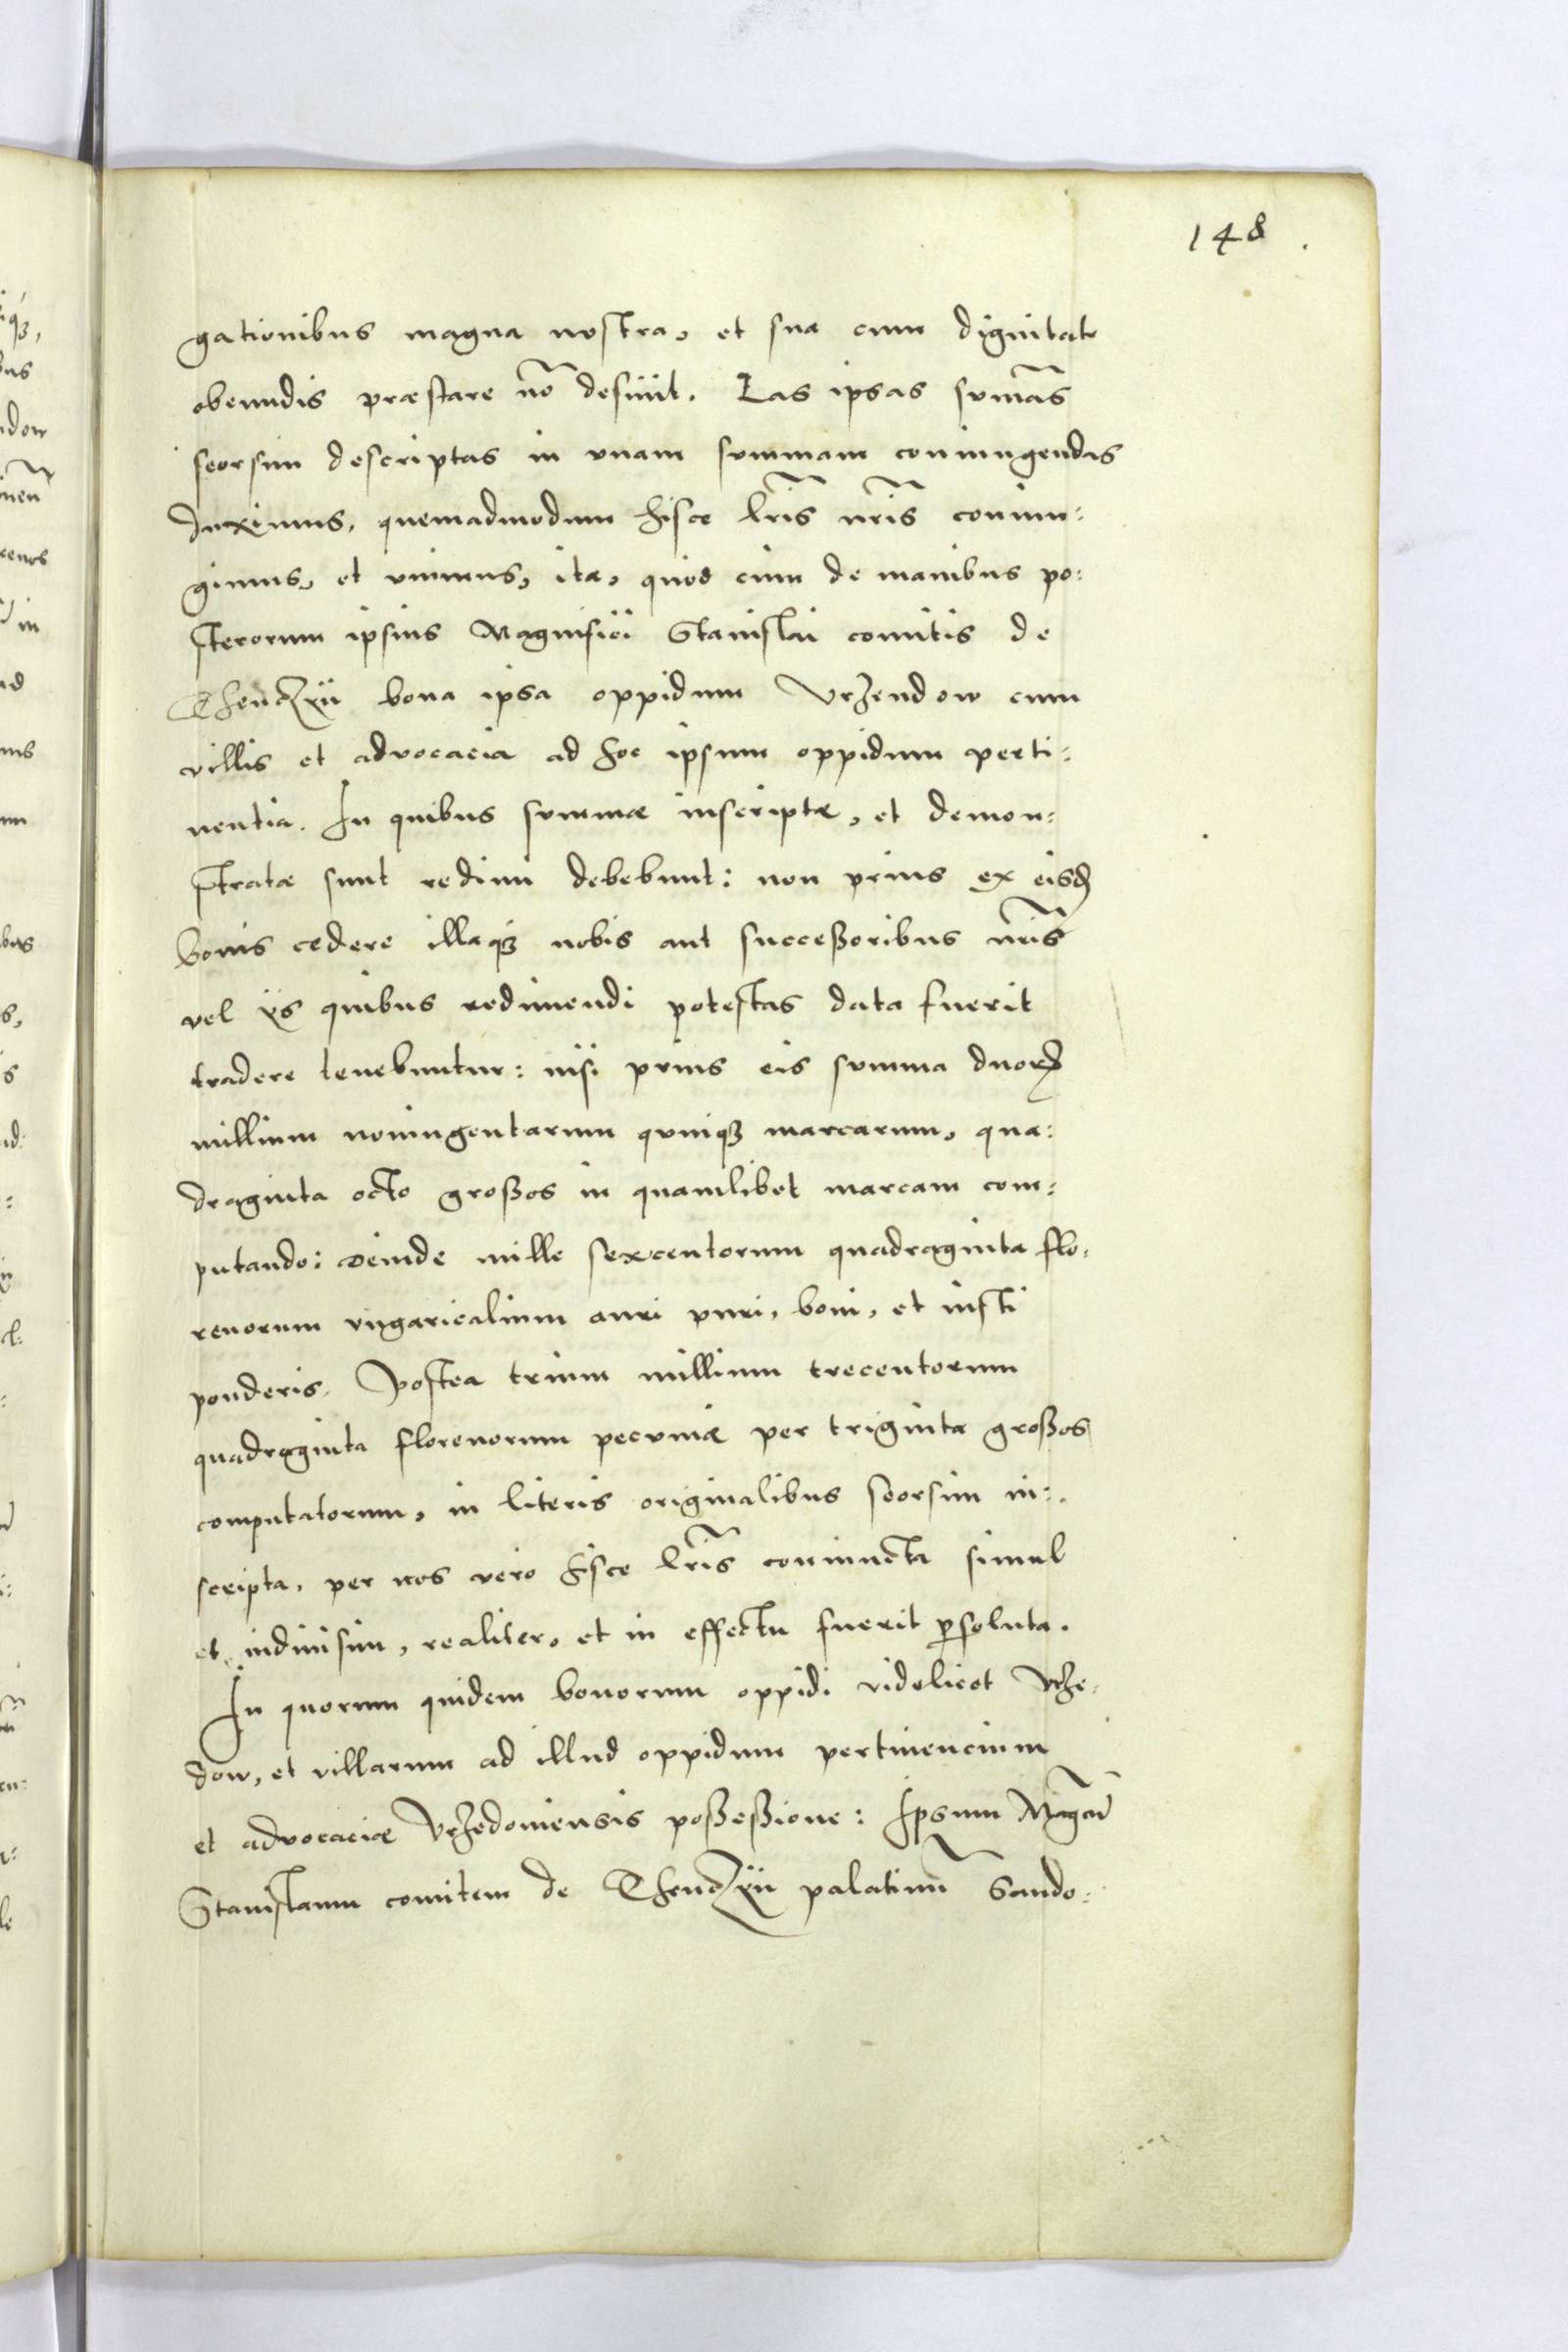 148
gationibus magna nostra, et sua cum dignitate
obeundis præstare nõ desinit. Eas ipsas sum̃as
seorsim descriptas in vnam summam coniungendas
duximus, quemadmodum hisce lr̃is nr̃is coniun:
gimus, et vnimus, ita, quod cum de manibus po:
sterorum ipsius Magnifici Stanislai comitis de
Thenczÿn bona ipsa oppidum Vrzendow cum
villis et advocacia ad hoc ipsum oppidum perti:
nentia. In quibus summæ inscriptæ, et demon:
stratæ sunt redimi debebunt: non prius ex eisd
bonis cedere illaqꝫ nobis aut successoribus nr̃is
vel ijs quibus redimendi potestas data fuerit
tradere tenebuntur: nisi prius eis summa duorꝝ
millium noningentarum quinqꝫ marcarum, qua:
draginta octo grossos in quamlibet marcam com:
putando: deinde mille sexcentorum quadraginta flo:
renorum vngaricalium auri puri, boni, et iusti
ponderis. Postea trium millium trecentorum
quadraginta florenorum pecuniæ per triginta grossos
computatorum, in literis originalibus seorsim in:
scripta, per nos vero hisce lr̃is coniuncta simul
et indiuisim, realiter, et in effectu fuerit ꝑsoluta.
In quorum quidem bonorum oppidi videlicet Vrze:
dow, et villarum ad illud oppidum pertinencium
et advocaciæ Vrzedoniensis possessione: Ipsum Magcũ
Stanislaum comitem de Thenczÿn palatinũ Sando: